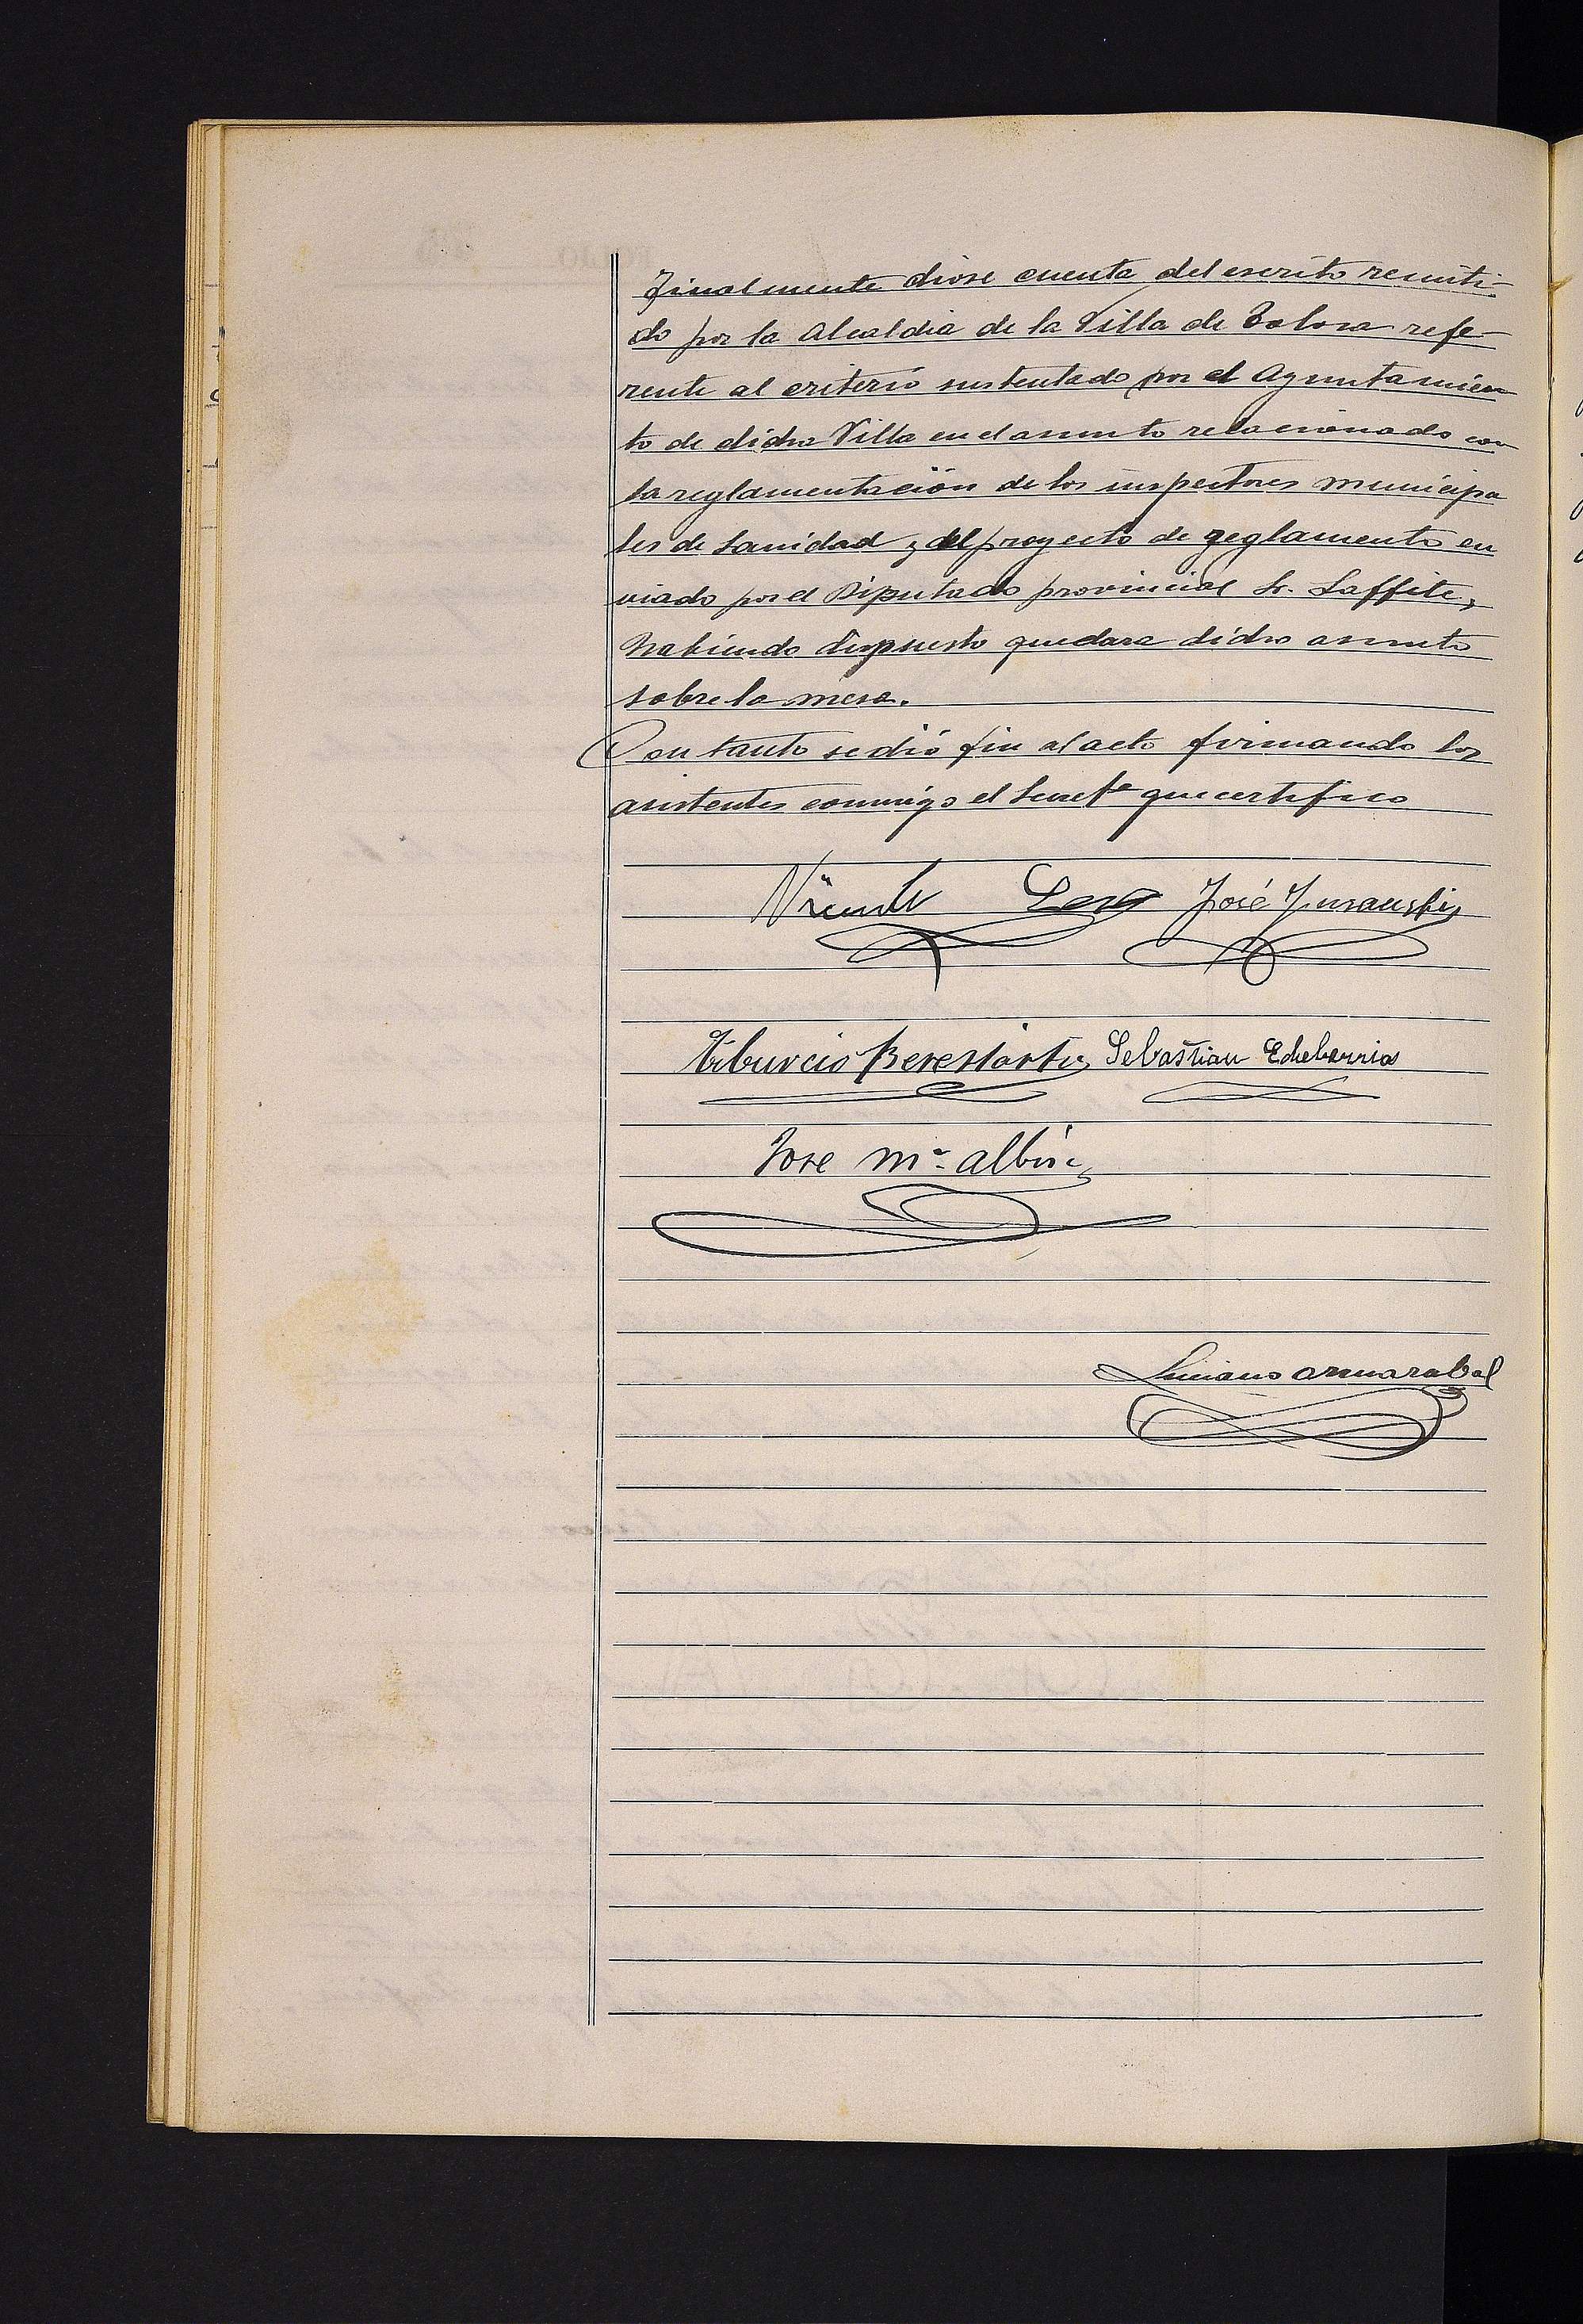 Finalmente diose cuenta del escrito remiti-
do por la Alcaldia de la Villa de Tolosa refe-
rente al criterio sustentado por el Ayuntamien
to de dicha Villa en el asunto relacionado con
la reglamentación de los inspectores municipa
les de Sanidad y del proyecto de reglamento en
viado por el Diputado provincial Sr. Laffite,
habiendo dispuesto quedara dicho asunto
sobre la mesa.
Con tanto se dió fin al acto firmando los
asistentes conmigo el Secretº que certifico
Vicente José
Tiburcio Berestartu Sebastian Echeberria
Jose Mª
Luciano